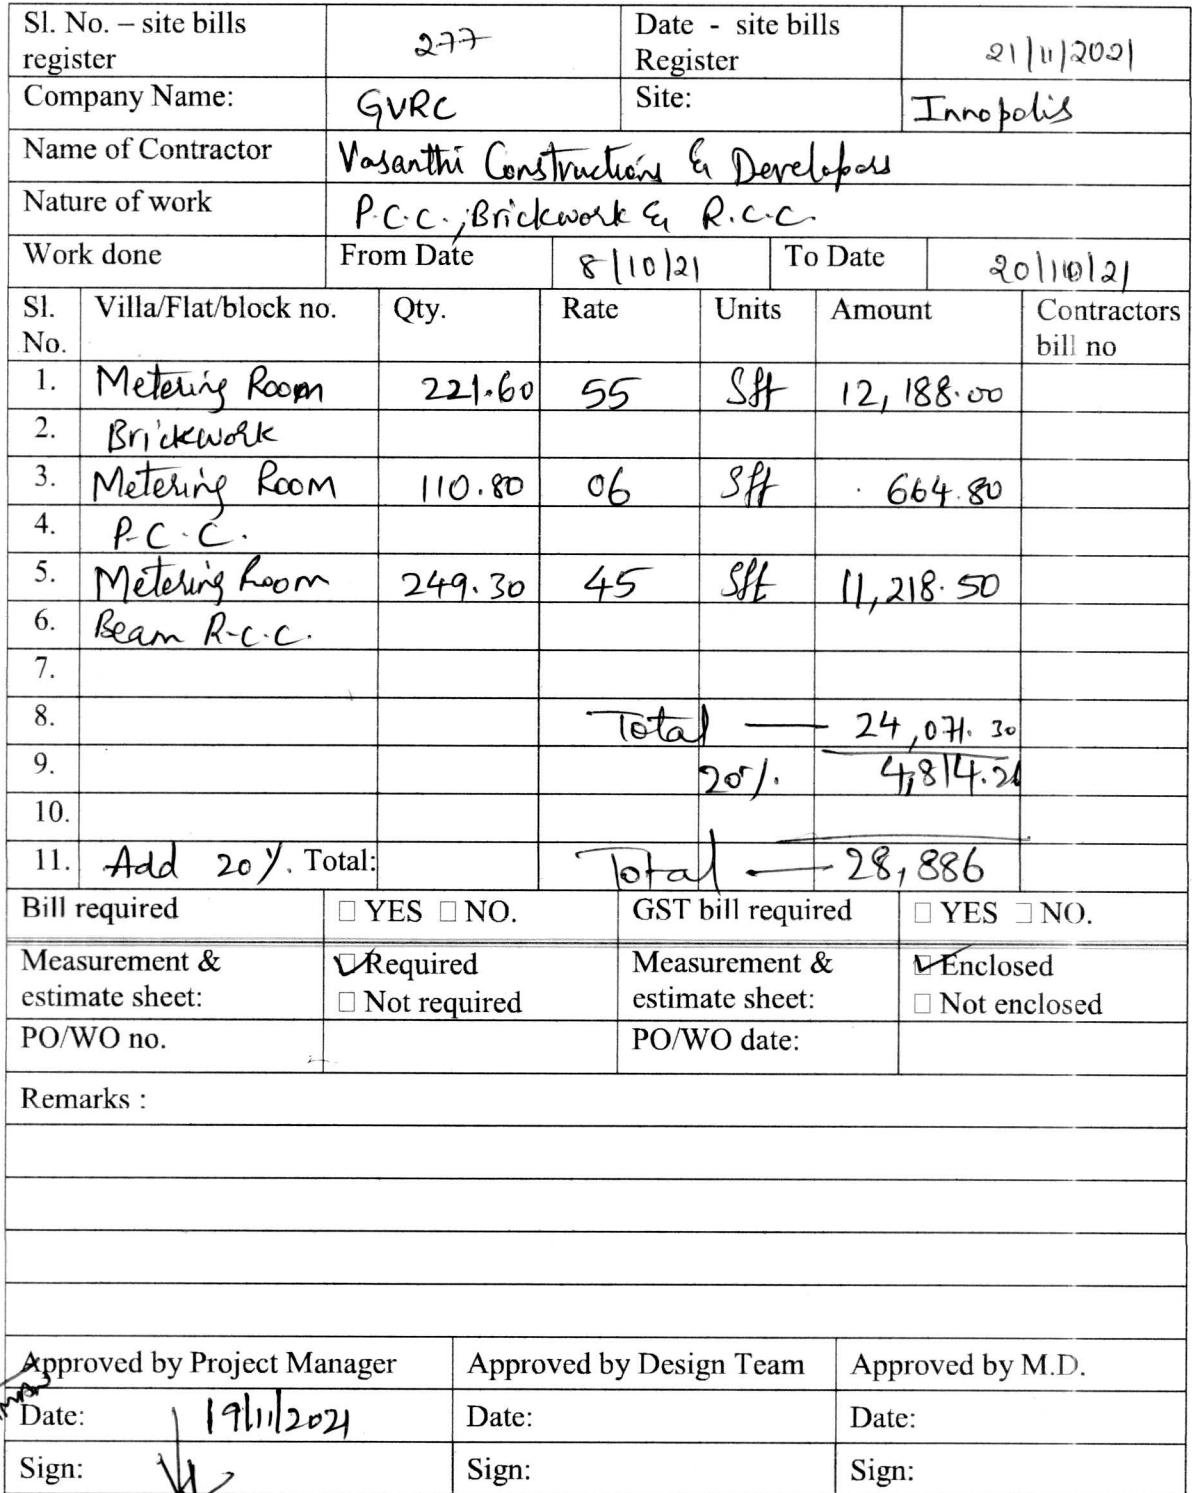 Sl. No. – site bills register 277 Date - site bills Register 21/11/2021
Company Name: GVRC Site: Innopolis
Name of Contractor Vasanthi Constructions & Developers
Nature of work P.C.C., Brickwork & R.C.C.
Work done From Date 8/10/21 To Date 20/10/21
Sl. No. Villa/Flat/block no. Qty. Rate Units Amount Contractors bill no
1. Metering Room 221.60 55 Sft 12,188.00
2. Brickwork
3. Metering Room 110.80 06 Sft 664.80
4. P.C.C.
5. Metering Room 249.30 45 Sft 11,218.50
6. Beam R.C.C.
7.
8. Total — 24,071.30
9. 20%. 4,814.26
10.
11. Add 20%. Total: Total — 28,886
Bill required □ YES □ NO. GST bill required □ YES □ NO.
Measurement & estimate sheet: ☑ Required □ Not required Measurement & estimate sheet: ☑ Enclosed □ Not enclosed
PO/WO no. PO/WO date:
Remarks :
Approved by Project Manager Approved by Design Team Approved by M.D.
Date: 19/11/2021 Date: Date:
Sign: Sign: Sign: